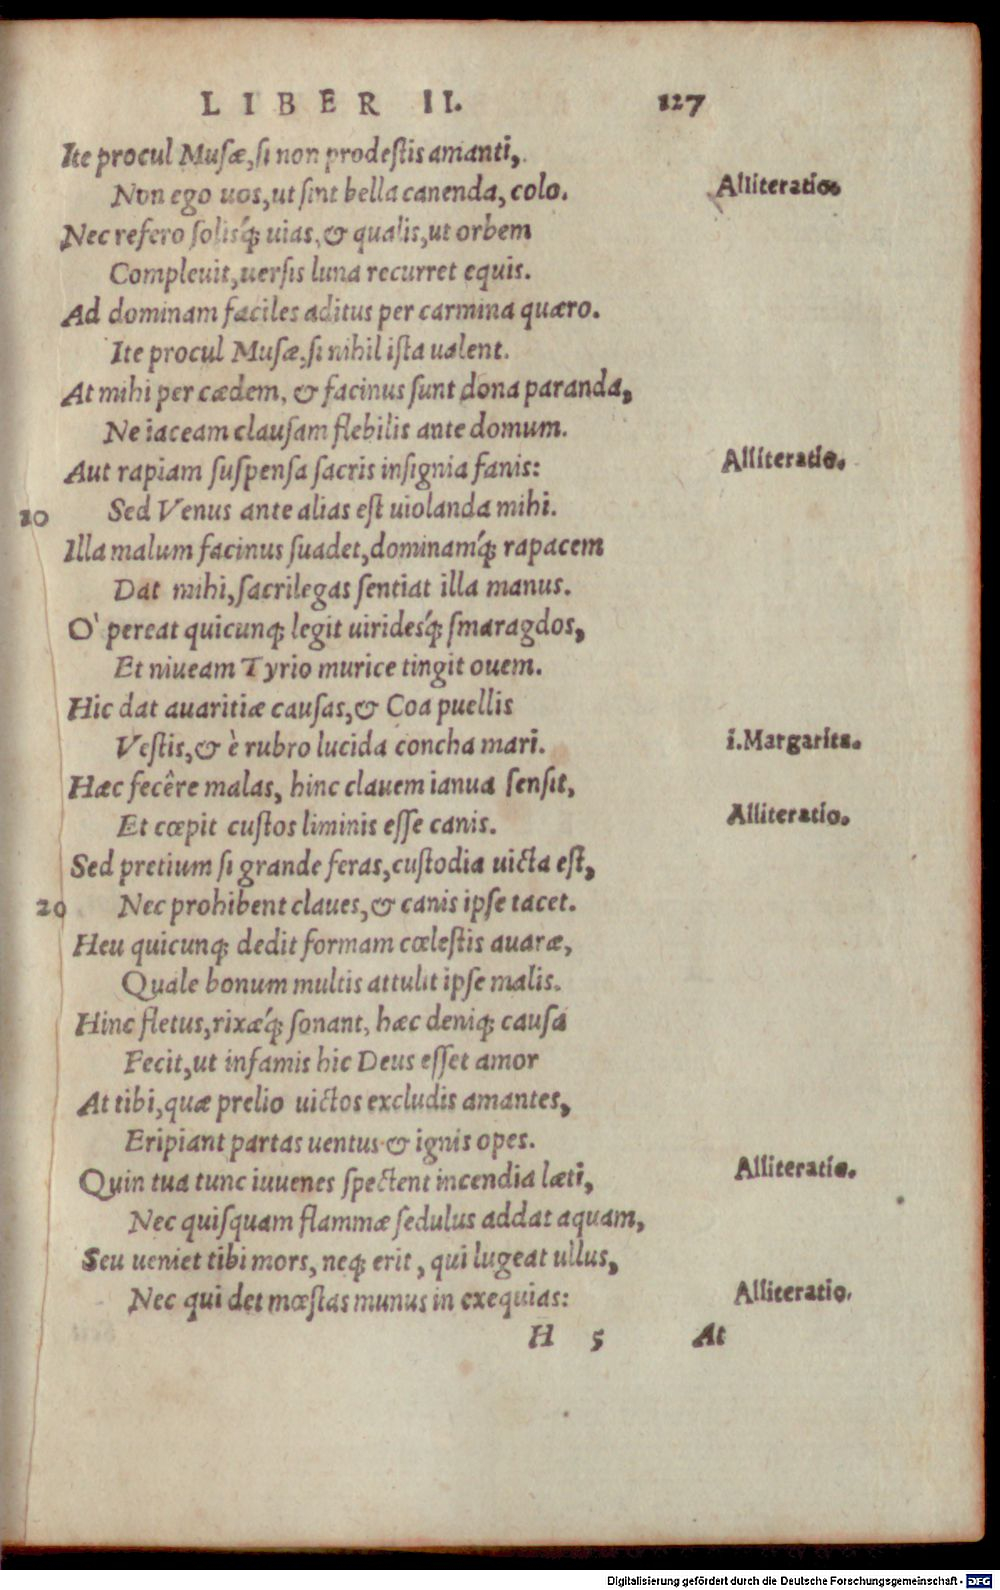 LIBER II. 127
Ite procul Muſæ, ſi non prodeſtis amanti,
Non ego uos, ut ſint bella canenda, colo. Alliteratio.
Nec refero ſolisq́; uias, & qualis, ut orbem
Complevit, uerſis luna recurret equis.
Ad dominam faciles aditus per carmina quæro.
Ite procul Muſæ, ſi nihil iſta ualent.
At mihi per cædem, & facinus ſunt dona paranda,
Ne iaceam clauſam flebilis ante domum.
Aut rapiam ſuſpenſa ſacris inſignia fanis: Alliteratio.
10 Sed Venus ante alias eſt uiolanda mihi.
Illa malum facinus ſuadet, dominamq́; rapacem
Dat mihi, ſacrilegas ſentiat illa manus.
O' pereat quicunq; legit uiridesq́; ſmaragdos,
Et niueam Tyrio murice tingit ouem.
Hic dat auaritiæ cauſas, & Coa puellis
Veſtis, & è rubro lucida concha mari. i. Margarita.
Hæc fecêre malas, hinc clauem ianua ſenſit,
Et cœpit cuſtos liminis eſſe canis. Alliteratio.
Sed pretium ſi grande feras, cuſtodia uicta eſt,
20 Nec prohibent claues, & canis ipſe tacet.
Heu quicunq; dedit formam cœleſtis auaræ,
Quale bonum multis attulit ipſe malis.
Hinc fletus, rixæq́; ſonant, hæc deniq; cauſa
Fecit, ut infamis hic Deus eſſet amor
At tibi, quæ prelio uictos excludis amantes,
Eripiant partas uentus & ignis opes.
Quin tua tunc iuuenes ſpectent incendia læti, Alliteratio.
Nec quiſquam flammæ ſedulus addat aquam,
Seu ueniet tibi mors, neq; erit, qui lugeat ullus,
Nec qui det mœſtas munus in exequias: Alliteratio.
H 5 At
Digitalisierung gefördert durch die Deutsche Forschungsgemeinschaft - DFG